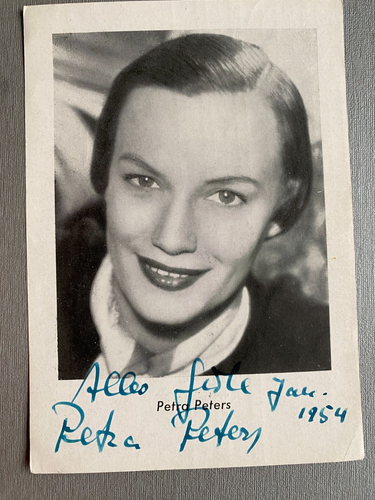 Alles Gute Jan.
1954
Petra Peters
Petra Peters